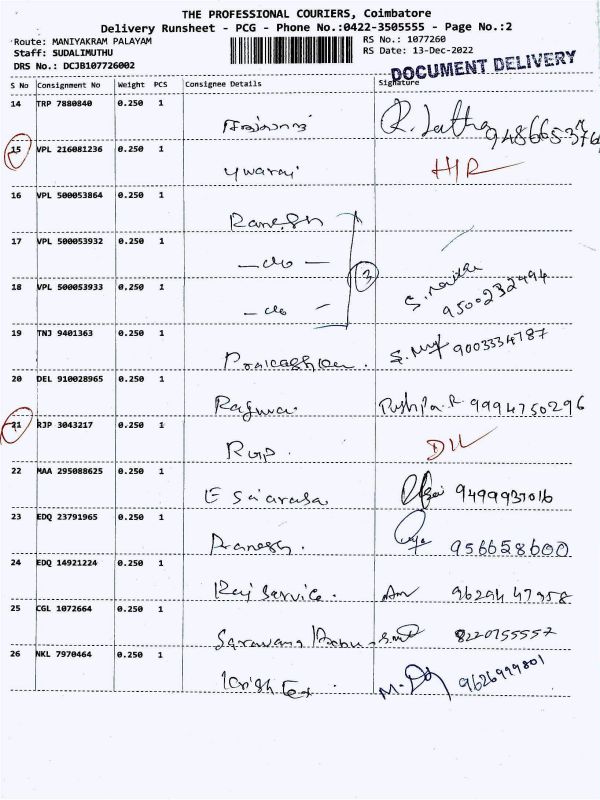 THE PROFESSIONAL COURIERS, Coimbatore
Delivery Runsheet - PCG - Phone No.:0422-3505555 - Page No.:2
Route: MANIYAKRAM PALAYAM
RS No.: 1077260
Staff: SUDALIMUTHU
RS Date: 13-Dec-2022
DRS No.: DCJB107726002
DOCUMENT DELIVERY
S No Consignment No Weight PCS Consignee Details Signature
14 TRP 7880840 0.250 1
R. Latha
15 VPL 216081236 0.250 1
Yuvaraj
16 VPL 500053864 0.250 1
Ranesh
17 VPL 500053932 0.250 1
— do —
3
18 VPL 500053933 0.250 1
— do — 9500232494
19 TNJ 9401363 0.250 1
9003334787
20 DEL 910028965 0.250 1
Ragava. Pushpa. R. 9994750296
21 RJP 3043217 0.250 1
DIL
22 MAA 295088625 0.250 1
E Saiarasa 9499937016
23 EDQ 23791965 0.250 1
Pranesh. 956658600
24 EDQ 14921224 0.250 1
Raj Service. 96294 47958
25 CGL 1072664 0.250 1
Saravana Babu 8220755557
26 NKL 7970464 0.250 1
Krish Tex 9626999801